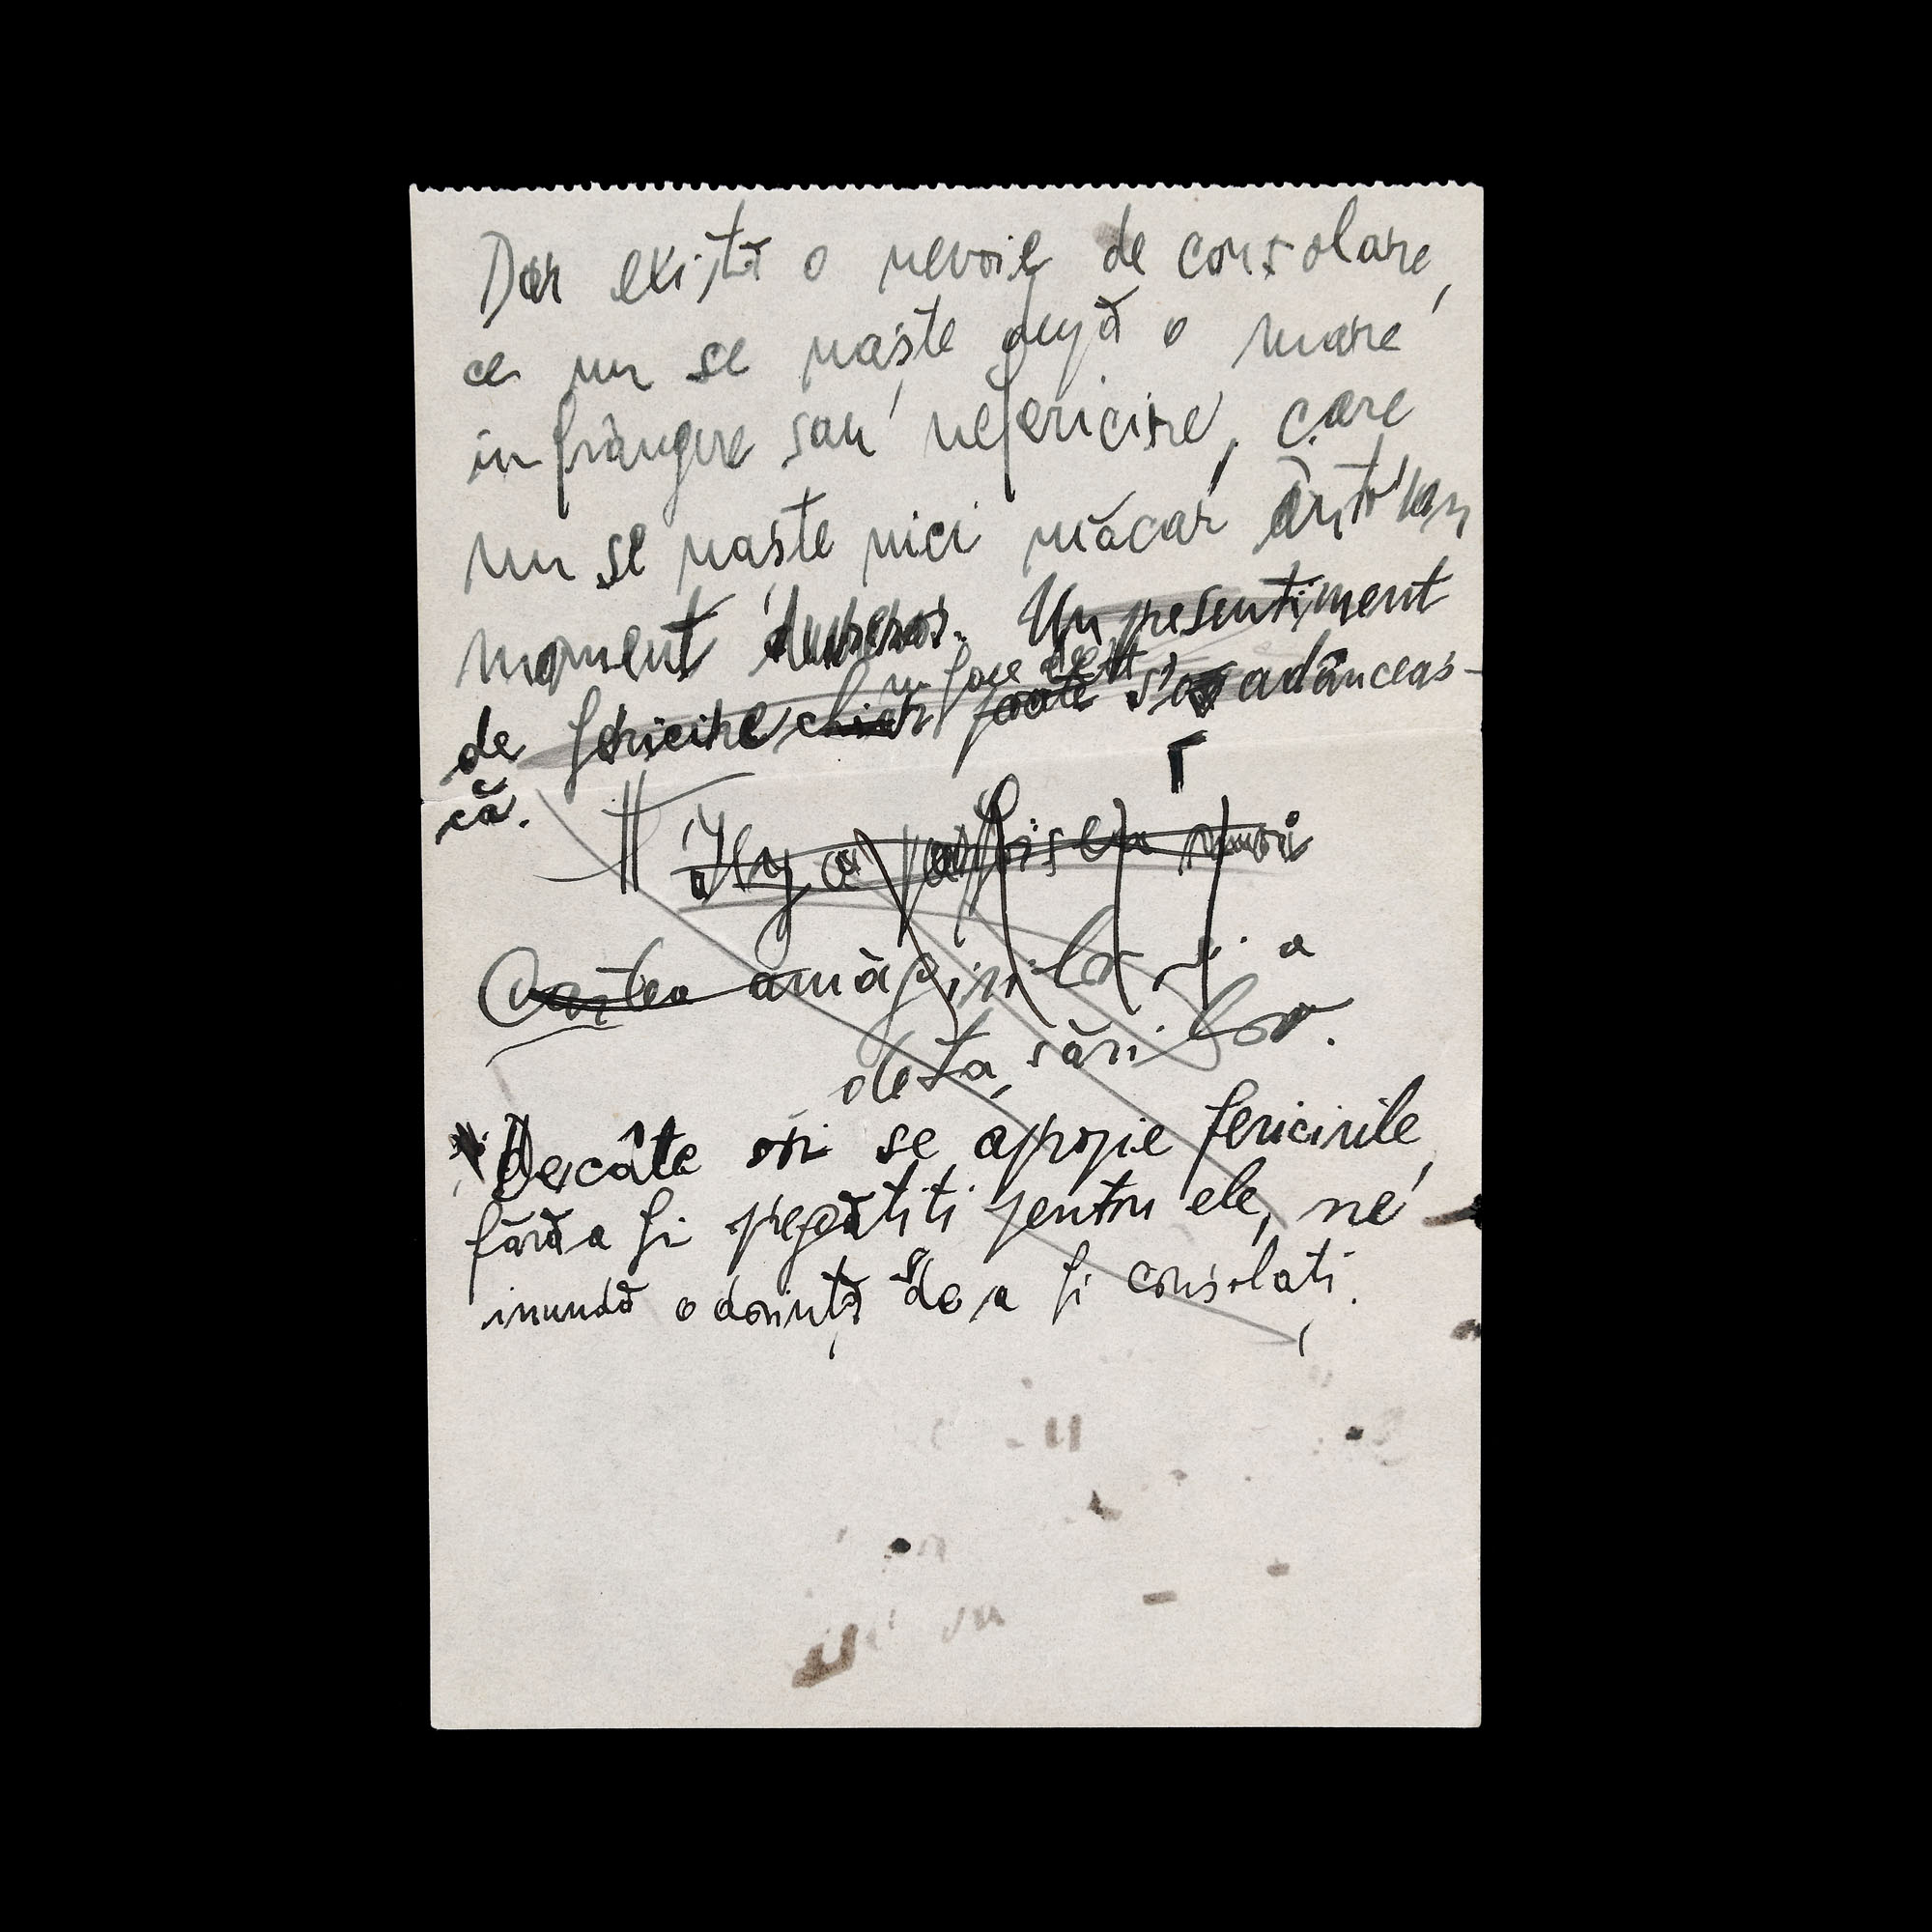 Dar există o nevoie de consolare,
ce nu se naște după o mare
infrângere sau nefericire, care
nu se naste nici măcar într'un
moment dureros. Un presentiment
nu face decât
de fericire chiar poate s'o adânceas-
că.
Il y a parfois un
Cartea amăgirilor și a
detașărilor.
Decâte ori se apropie fericirile,
fără a fi pregătiti pentru ele, ne
inundă o dorință de a fi consolați.